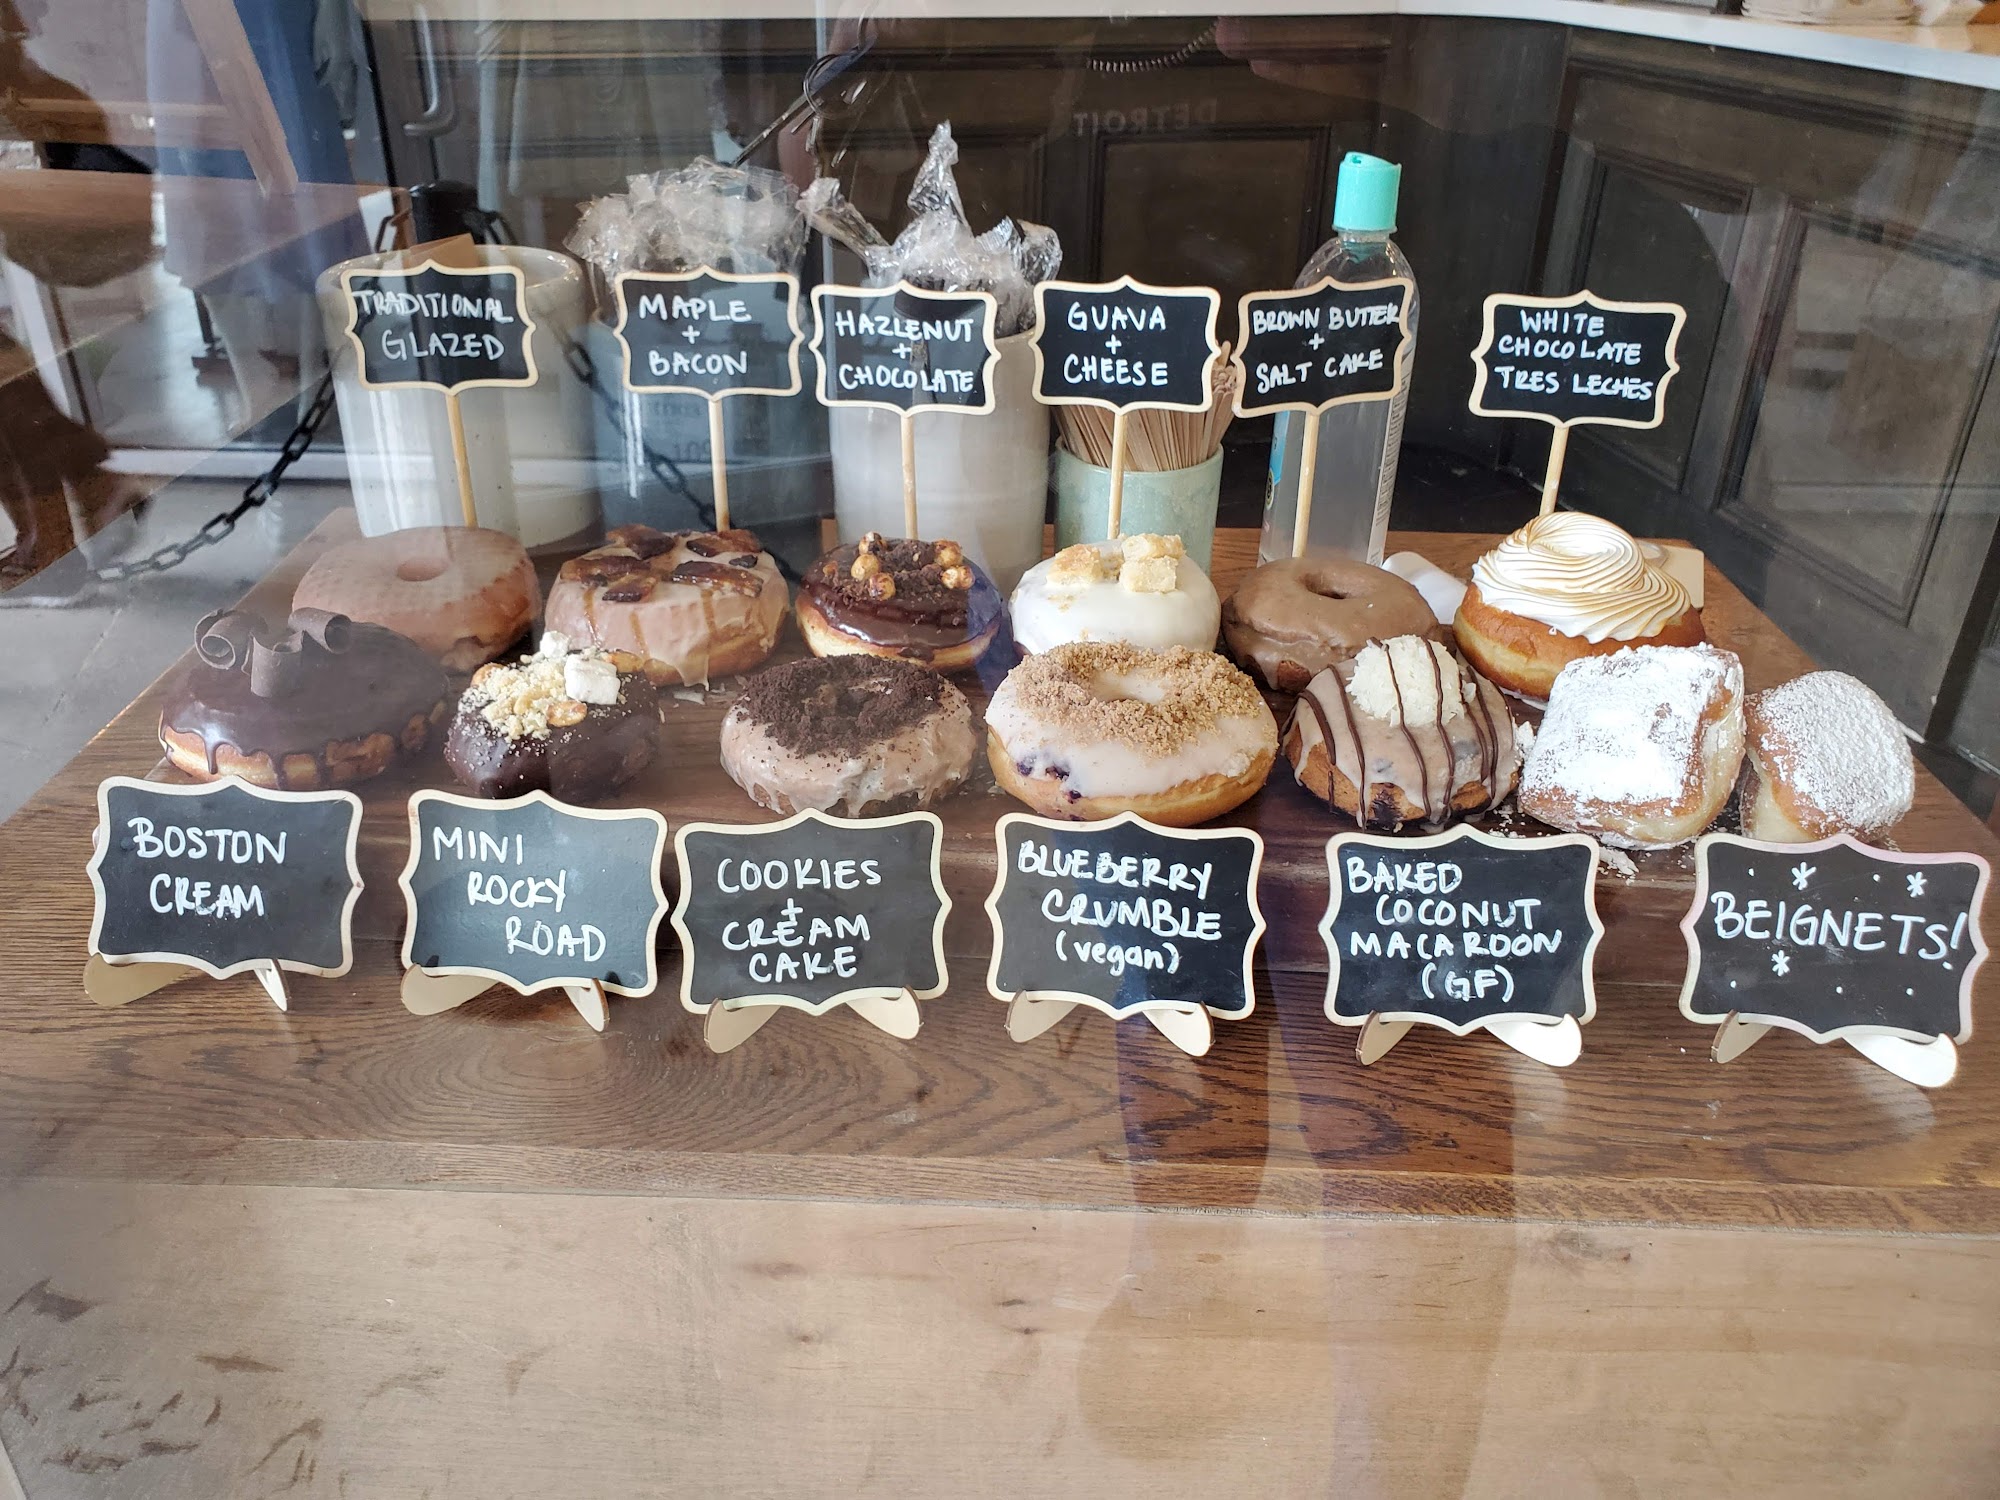 TRADITIONAL
GLAZED
MAPLE
+
BACON
HAZLENUT
+
CHOCOLATE
GUAVA
+
CHEESE
BROWN BUTTER
+
SALT CAKE
WHITE
CHOCOLATE
TRES LECHES
BOSTON
CREAM
MINI
ROCKY
ROAD
COOKIES
+
CREAM
CAKE
BLUEBERRY
CRUMBLE
(vegan)
BAKED
COCONUT
MACAROON
(GF)
BEIGNETS!
DETROIT